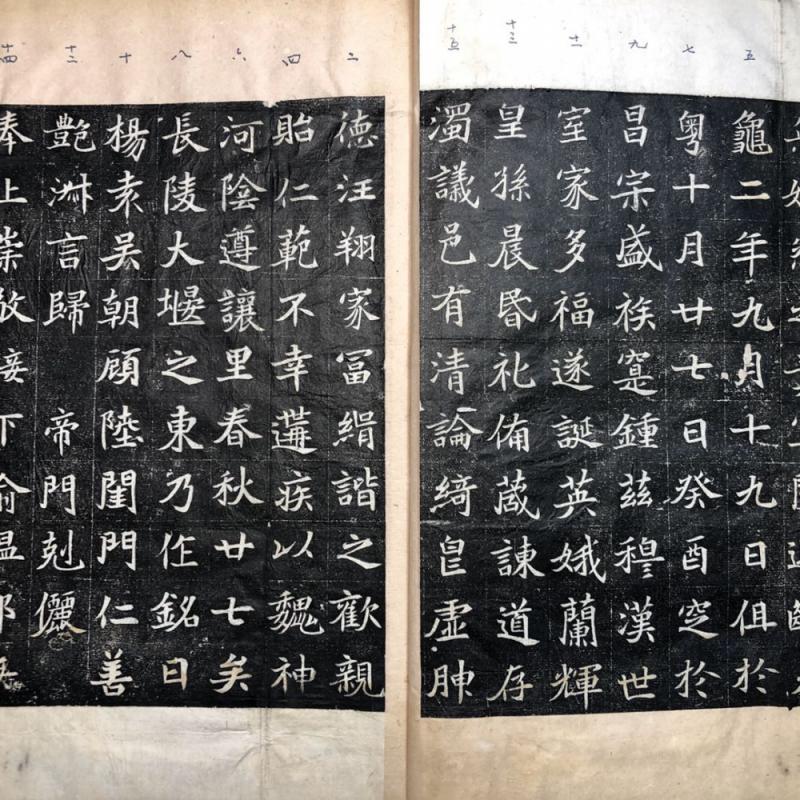 五
七
九
十一
十三
十五
龜二年九月十九日徂於
粵十月廿七日癸酉窆於
昌宗盛族寔鍾茲穆漢世
室家多福遂誕英娥蘭輝
皇孫晨昏礼俻葴諫道存
濁議邑有清論綺虛
二
四
六
八
十
十二
十四
德汪翔家冨緝諧之歡親
貽仁範不幸遘疾以魏神
河陰遵讓里春秋廿七矣
長陵大堰之東乃作銘曰
楊袁吳朝顧陸閨門仁善
艷淋言歸 帝門剋儷
奉上崇敬接下